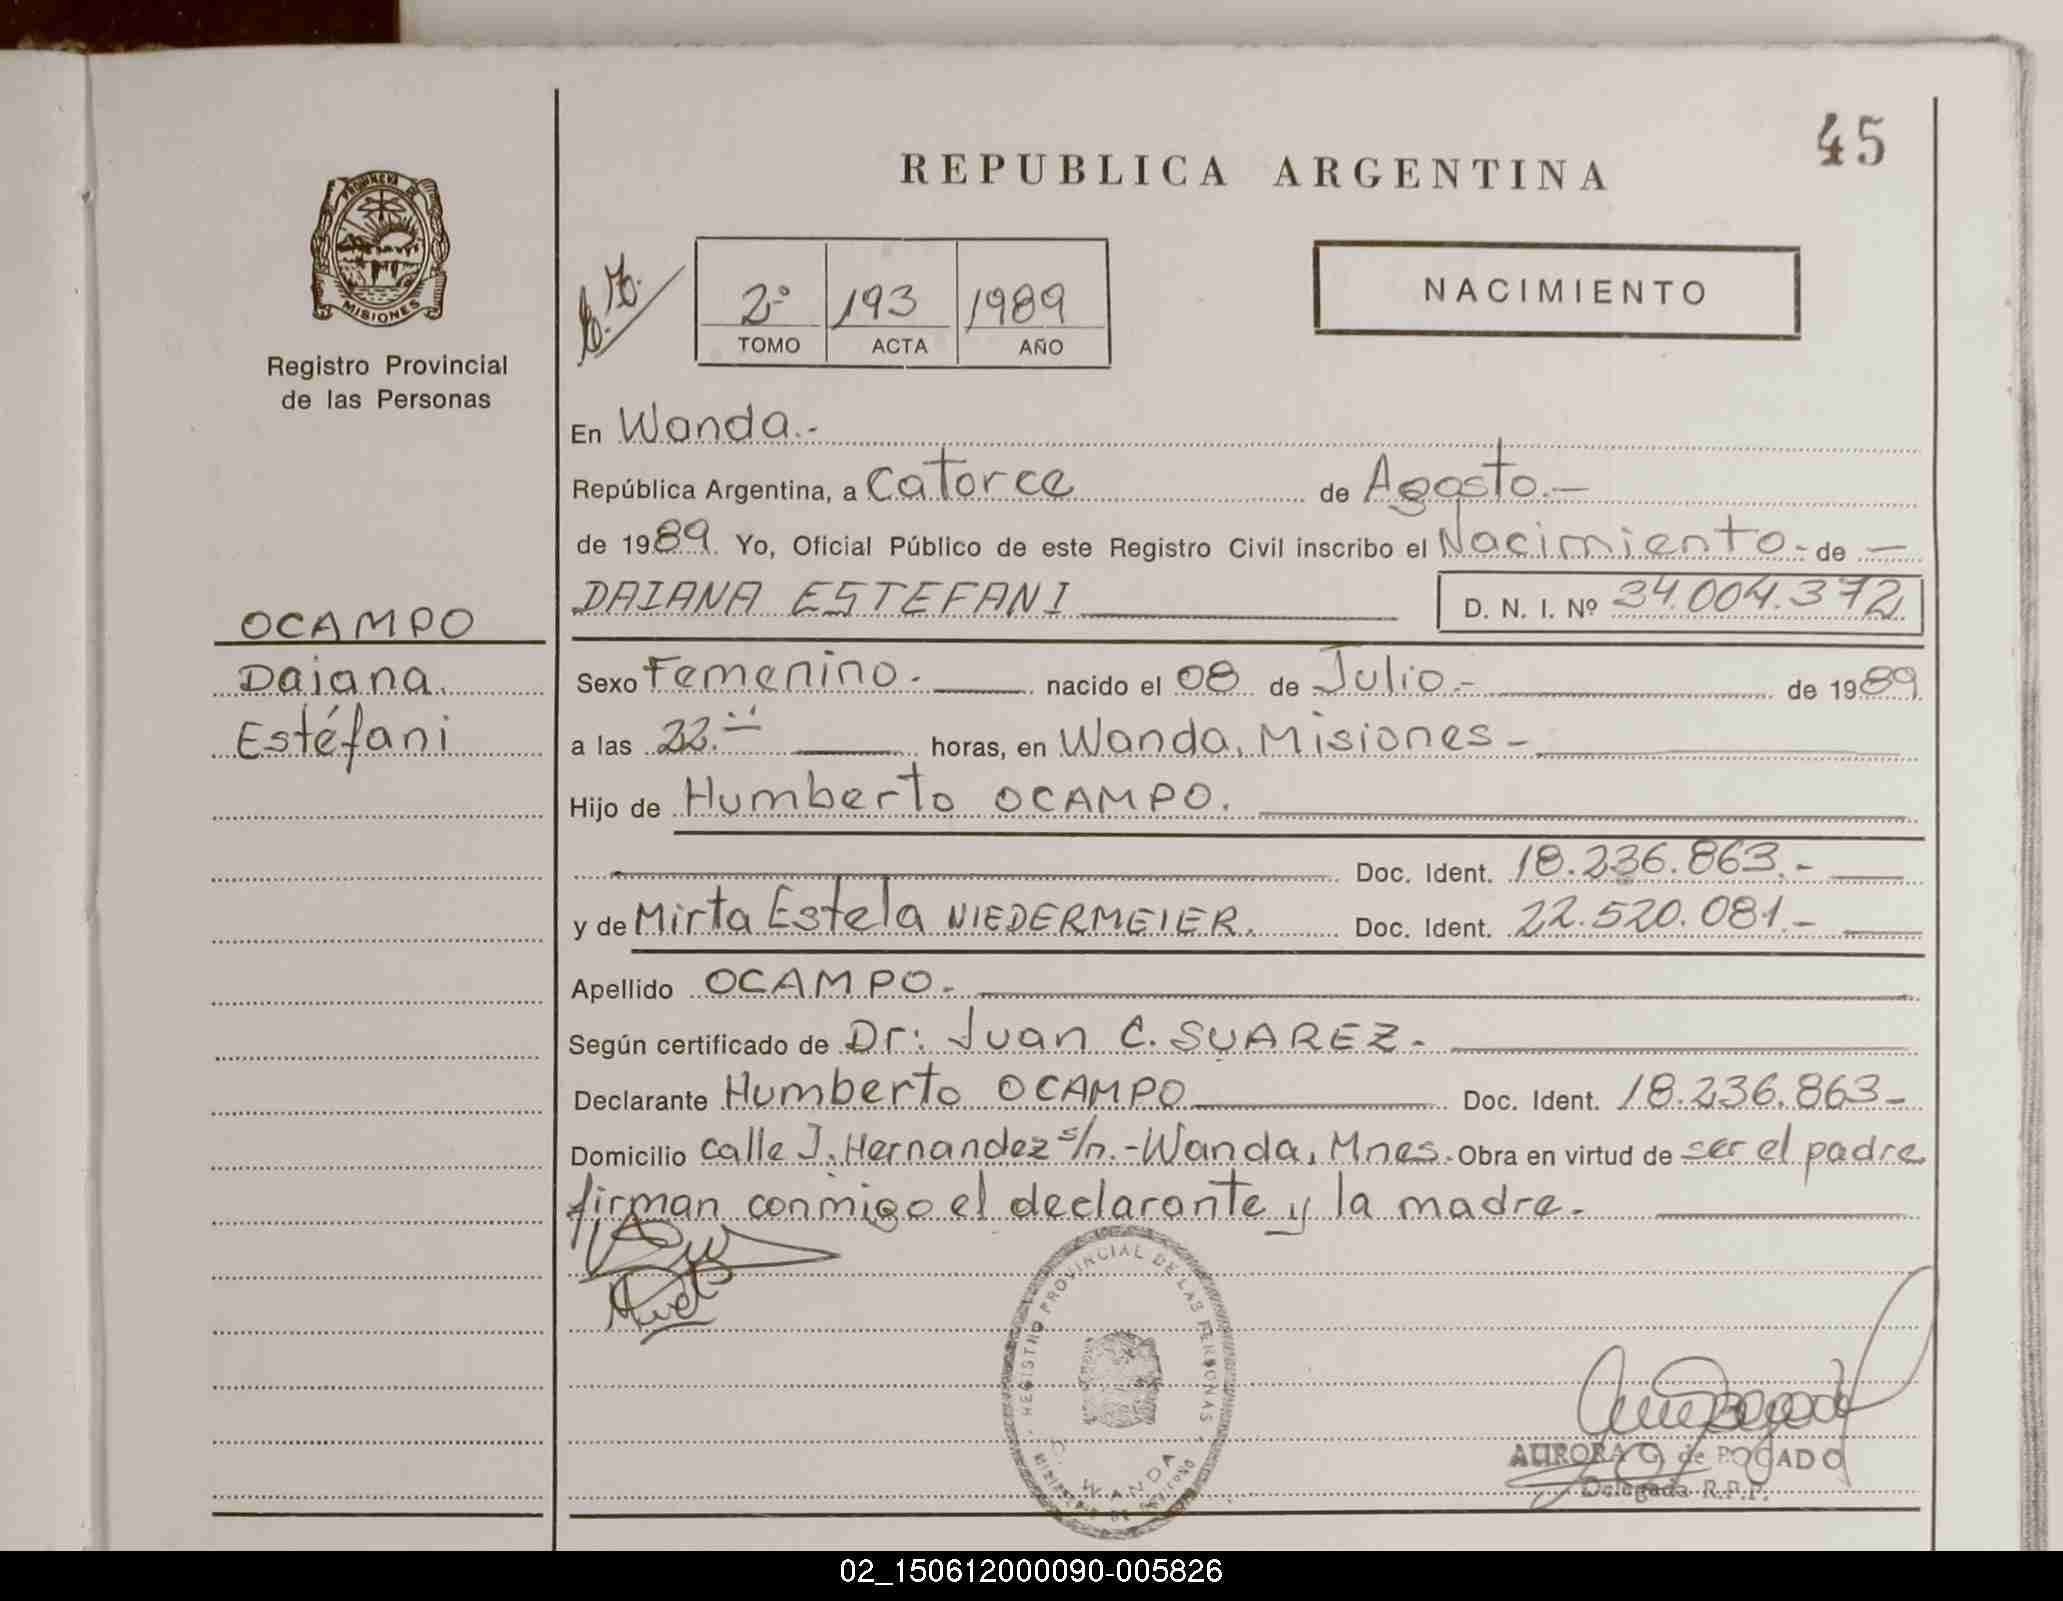 45
REPUBLICA ARGENTINA
PROVINCIA DE
MISIONES
Registro Provincial
de las Personas
2º 193 1989
TOMO ACTA AÑO
NACIMIENTO
En Wanda.-
República Argentina, a Catorce de Agosto.-
de 1989. Yo, Oficial Público de este Registro Civil inscribo el Nacimiento.- de -
DAIANA ESTEFANI D. N. I. Nº 34.004.372
OCAMPO
Daiana
Estéfani
Sexo Femenino. nacido el 08 de Julio.- de 1989
a las 22.- horas, en Wanda, Misiones -
Hijo de Humberto OCAMPO.
Doc. Ident. 18.236.863.-
y de Mirta Estela NIEDERMEIER. Doc. Ident. 22.520.081.-
Apellido OCAMPO.-
Según certificado de Dr: Juan C. SUAREZ.-
Declarante Humberto OCAMPO Doc. Ident. 18.236.863-
Domicilio calle J. Hernandez s/n.-Wanda, Mnes. Obra en virtud de ser el padre
firman conmigo el declarante y la madre.-
REGISTRO PROVINCIAL DE LAS PERSONAS
WANDA
MINISTERIO DE GOBIERNO
AURORA G. de POGADO
Delegada R.P.P.
02_150612000090-005826